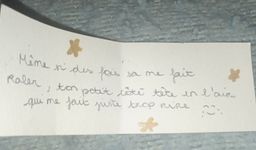 Même si des fois sa me fait
Raler, ton petit côté tête en l'air
qui me fait juste trop rire